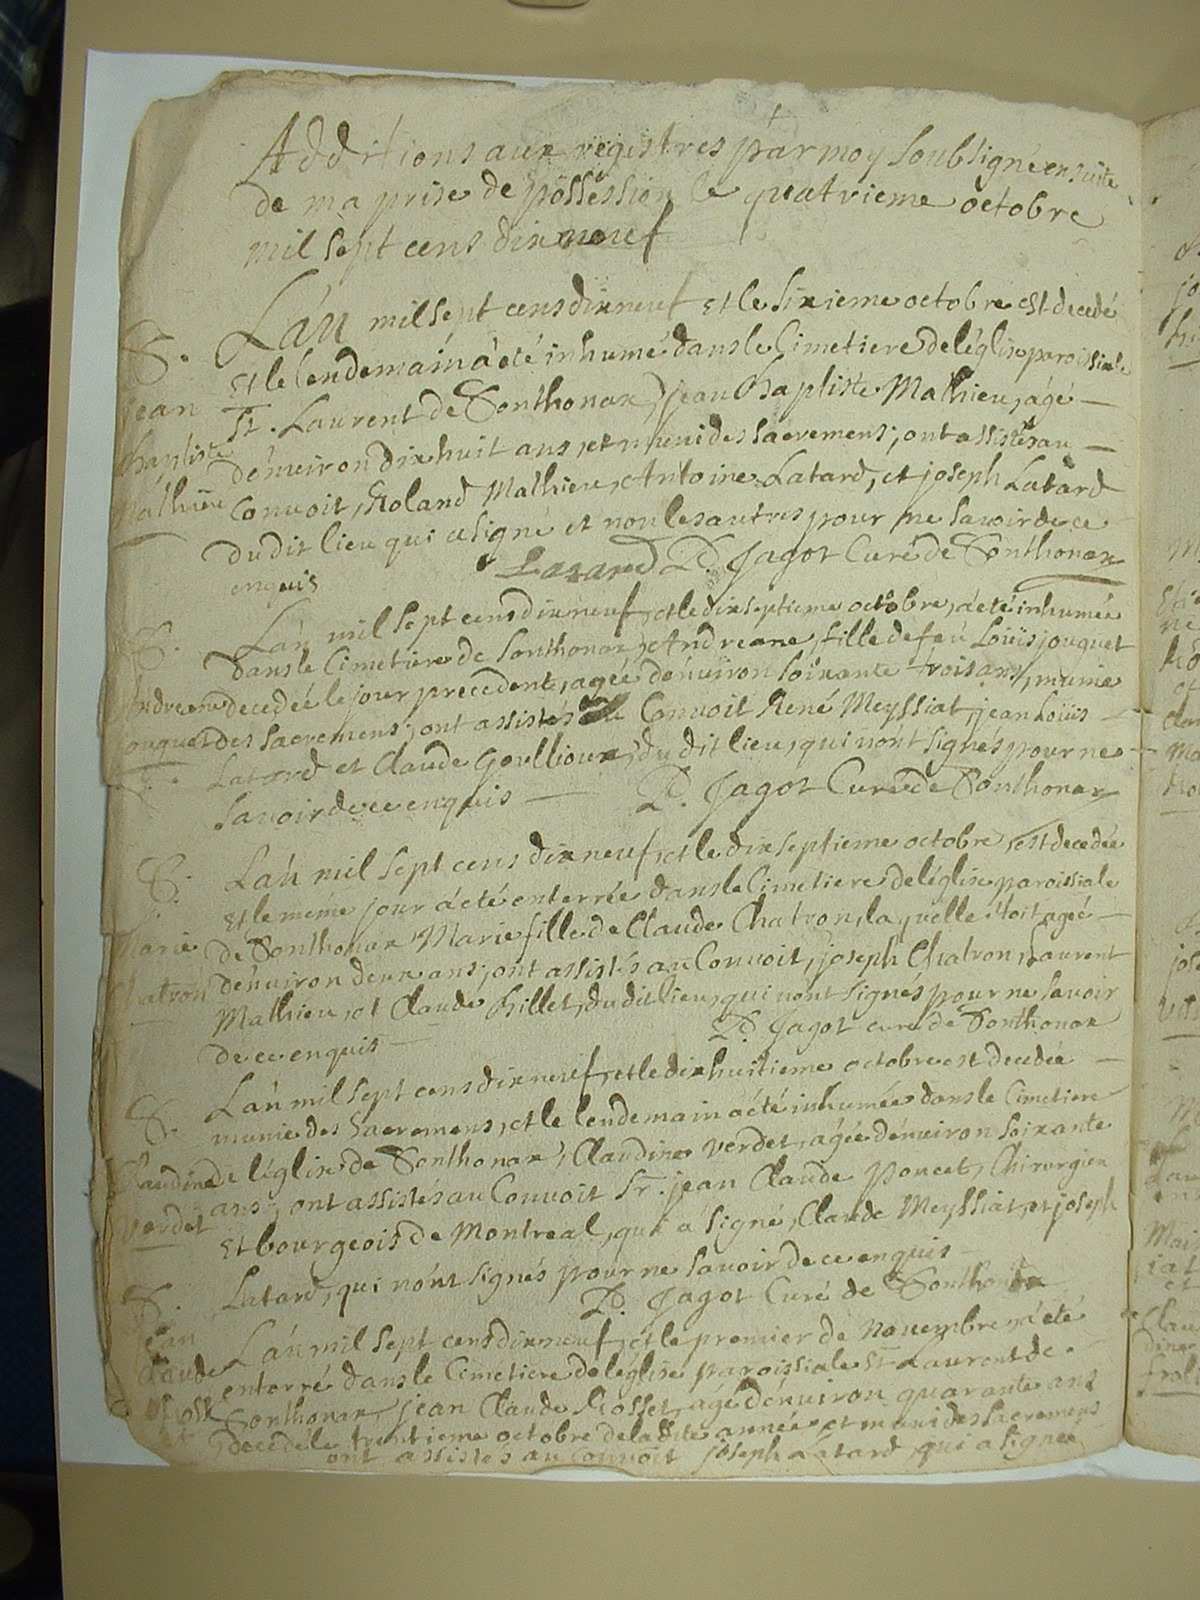 Additions aux registres par moy soubsigné ensuite
de ma prise de possession le quatrieme octobre
mil sept cens dix neuf
L'an mil sept cens dix neuf et le sixieme octobre est decedé
et le lendemain a été inhumé dans le Cimetiere de l'église paroissiale
St. Laurent de Sonthonax, jean Baptiste Mathieu, agé
d'environ dix huit ans, et muni des sacremens; ont assistés au
Convoit, Roland Mathieu, Antoine Latard, et joseph Latard
du dit lieu qui a signé et non les autres pour ne savoir de ce
enquis Latard D. Jagot Curé de Sonthonax
S.
jean
Baptiste
Mathieu
L'an mil sept cens dix neuf, et le dix septieme octobre, a été inhumée
dans le Cimetiere de Sonthonax, Andreane, fille de feu Loüis jouquet
decedée le jour precedent, agée d'environ soixante trois ans, munie
des sacremens; ont assistés au Convoit René Meyssiat, jean Loüis
Latard et Claude Goullioux, du dit lieu, qui n'ont signés pour ne
savoir de ce enquis D. Jagot Curé de Sonthonax
S.
Andreane
jouquet
L'an mil sept cens dix neuf, et le dix septieme octobre, est decedée
et le meme jour a été enterrée dans le Cimetiere de l'église paroissiale
de Sonthonax Marie fille de Claude Chatron, laquelle étoit agée
d'environ deux ans; ont assistés au Convoit, joseph Chatron, Laurent
Mathieu, et Claude Billet, du dit lieu, qui n'ont signés pour ne savoir
de ce enquis D. Jagot curé de Sonthonax
S.
Marie
Chatron
L'an mil sept cens dix neuf, et le dix huitieme octobre est decedée
munie des Sacremens, et le lendemain a été inhumée dans le Cimetiere
de l'église de Sonthonax, Claudine Verdet, agée d'environ soixante
ans; ont assistés au Convoit Sr. jean Claude Poncet, Chirurgien
et bourgeois de Montreal, qui a signé, Claude Meyssiat, et joseph
Latard, qui n'ont signés pour ne savoir de ce enquis
D. Jagot Curé de Sonthonax
S.
Claudine
Verdet
L'an mil sept cens dix neuf, et le premier de Novembre, a été
enterré dans le Cimetiere de l'église paroissiale St Laurent de
Sonthonax, jean Claude Rosset, agé d'environ quarante ans
decedé le trentieme octobre de la dite année et muni des sacremens
ont assistés au Convoit joseph Latard, qui a signé
S.
jean
Claude
Rosset